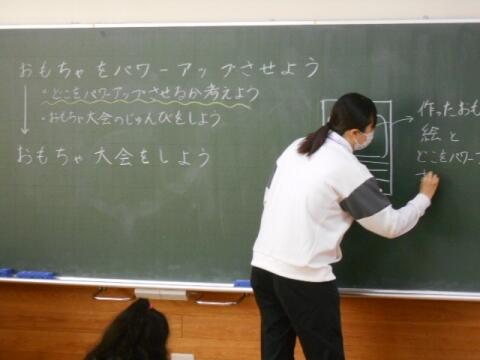 おもちゃをパワーアップさせよう
・どこをパワーアップさせるか考えよう
・おもちゃ大会のじゅんびをしよう
おもちゃ大会をしよう
作ったおも
絵と
どこをパワー